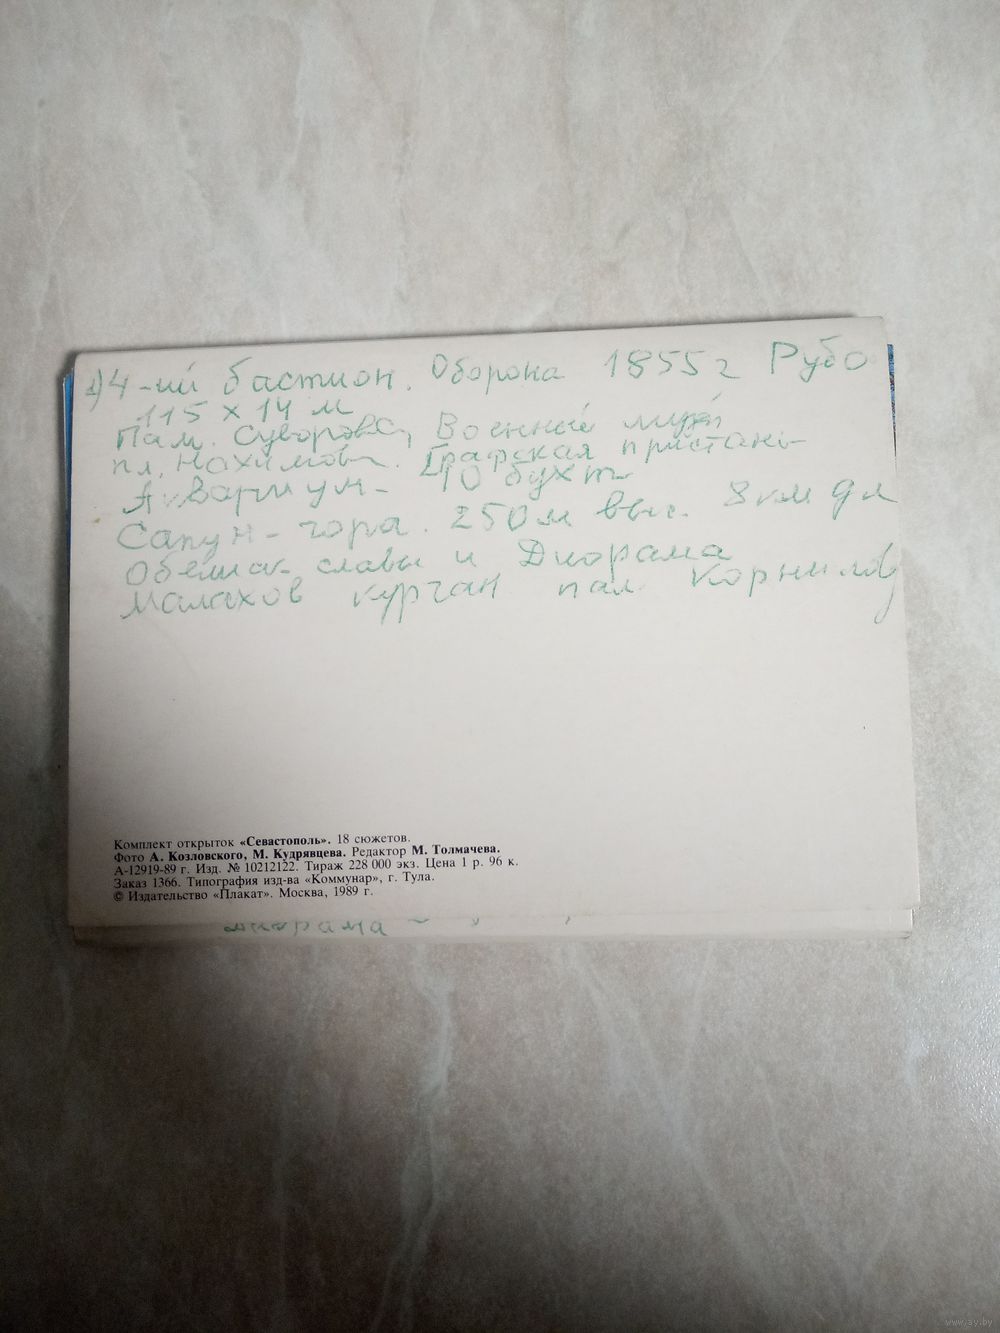 1) 4-ий бастион. Оборона 1855 г Рубо
115 х 14 м
Пам. Суворову, Военный музей
пл. Нахимова. Графская пристань
Аквариум - 10 бухт
Сапун-гора. 250 м выс. 8 км дл
Обелиск славы и Диорама
Малахов курган пам. Корнилову
Комплект открыток «Севастополь». 18 сюжетов.
Фото А. Козловского, М. Кудрявцева. Редактор М. Толмачева.
А-12919-89 г. Изд. № 10212122. Тираж 228 000 экз. Цена 1 р. 96 к.
Заказ 1366. Типография изд-ва «Коммунар», г. Тула.
© Издательство «Плакат». Москва, 1989 г.
диорама
www.ay.by